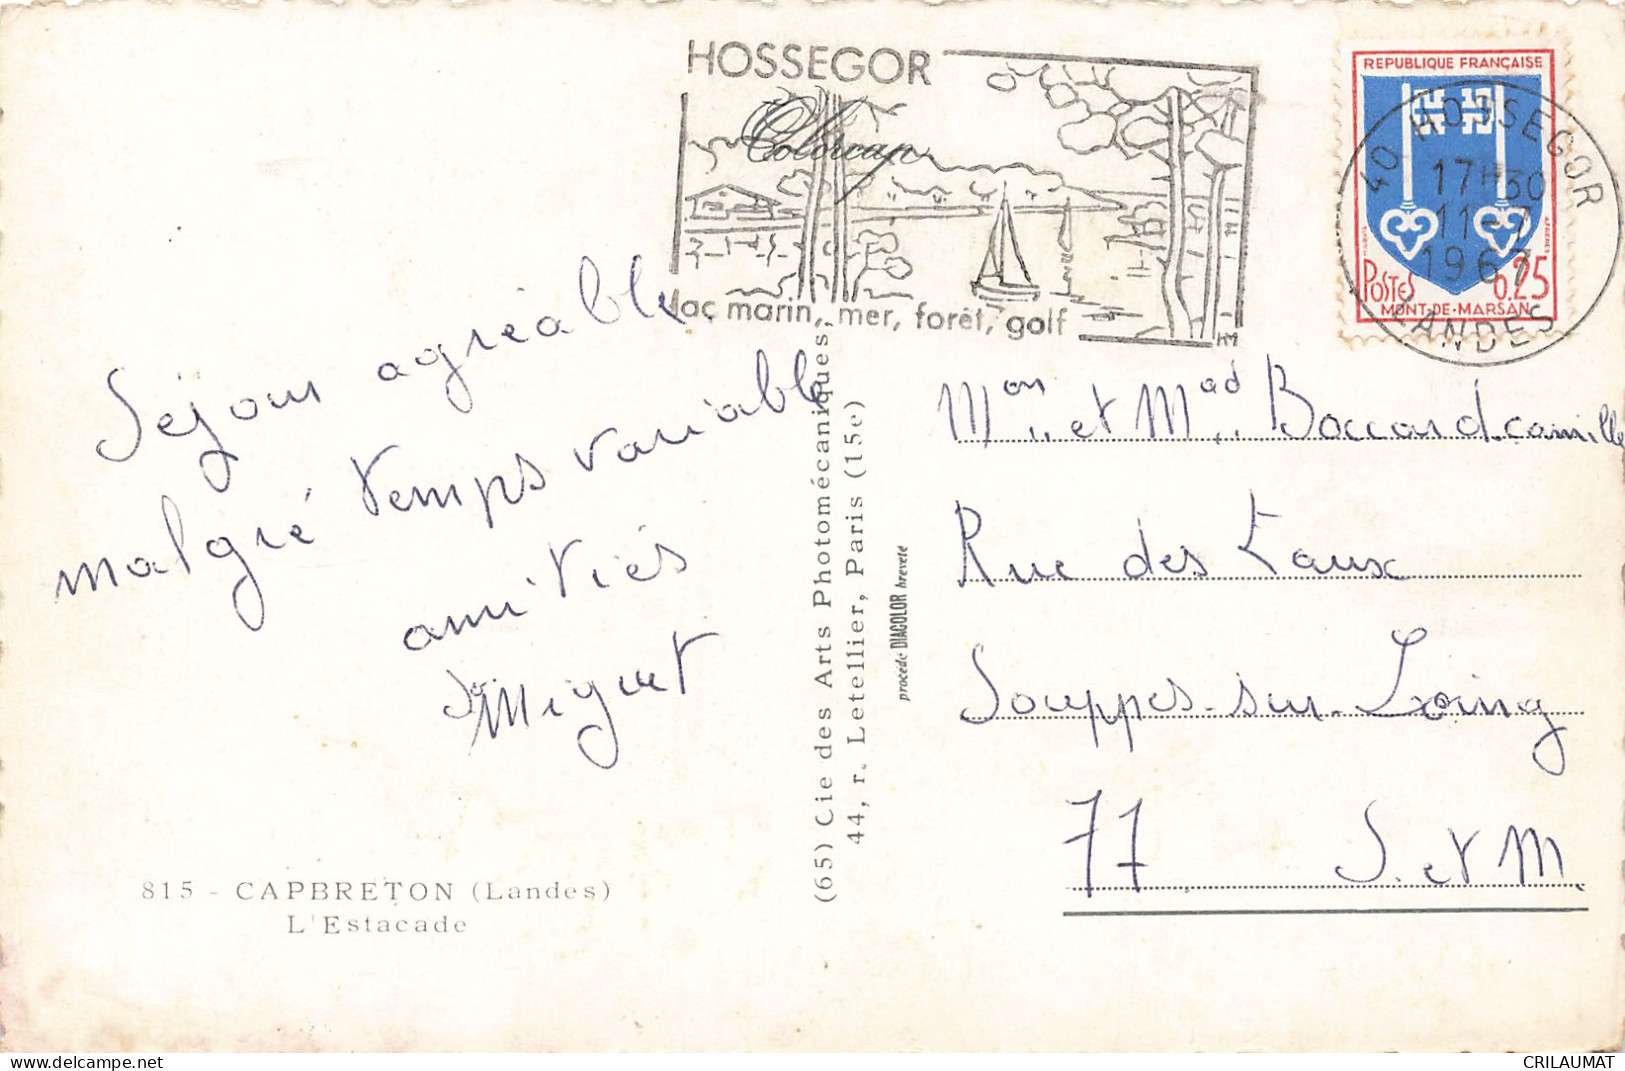 HOSSEGOR
Colorcap
lac marin, mer, forêt, golf
REPUBLIQUE FRANÇAISE
POSTES
0.25
MONT-DE-MARSAN
40 HOSSEGOR
17H30
11-7
1967
LANDES
Séjour agréable
malgré temps variable
amitiés
Miguet
815 - CAPBRETON (Landes)
L'Estacade
(65) Cie des Arts Photomécaniques
44, r. Letellier, Paris (15e)
procédé DIACOLOR breveté
Mon et Mad Boccard camille
Rue des Eaux
Souppes-sur-Loing
77 S. et M.
https://www.delcampe.net
CRILAUMAT